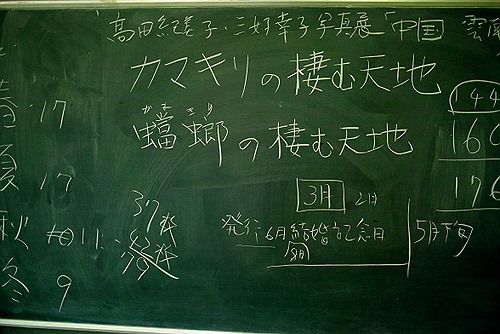 高田紀恵子・三好幸子写真展「中国 雲南
カマキリの棲む天地
かまきり
蟷螂の棲む天地
144
160
176
春 17
夏 17
秋 11
冬 9
37
3月 2日
発行 6月結婚記念日
5月下旬